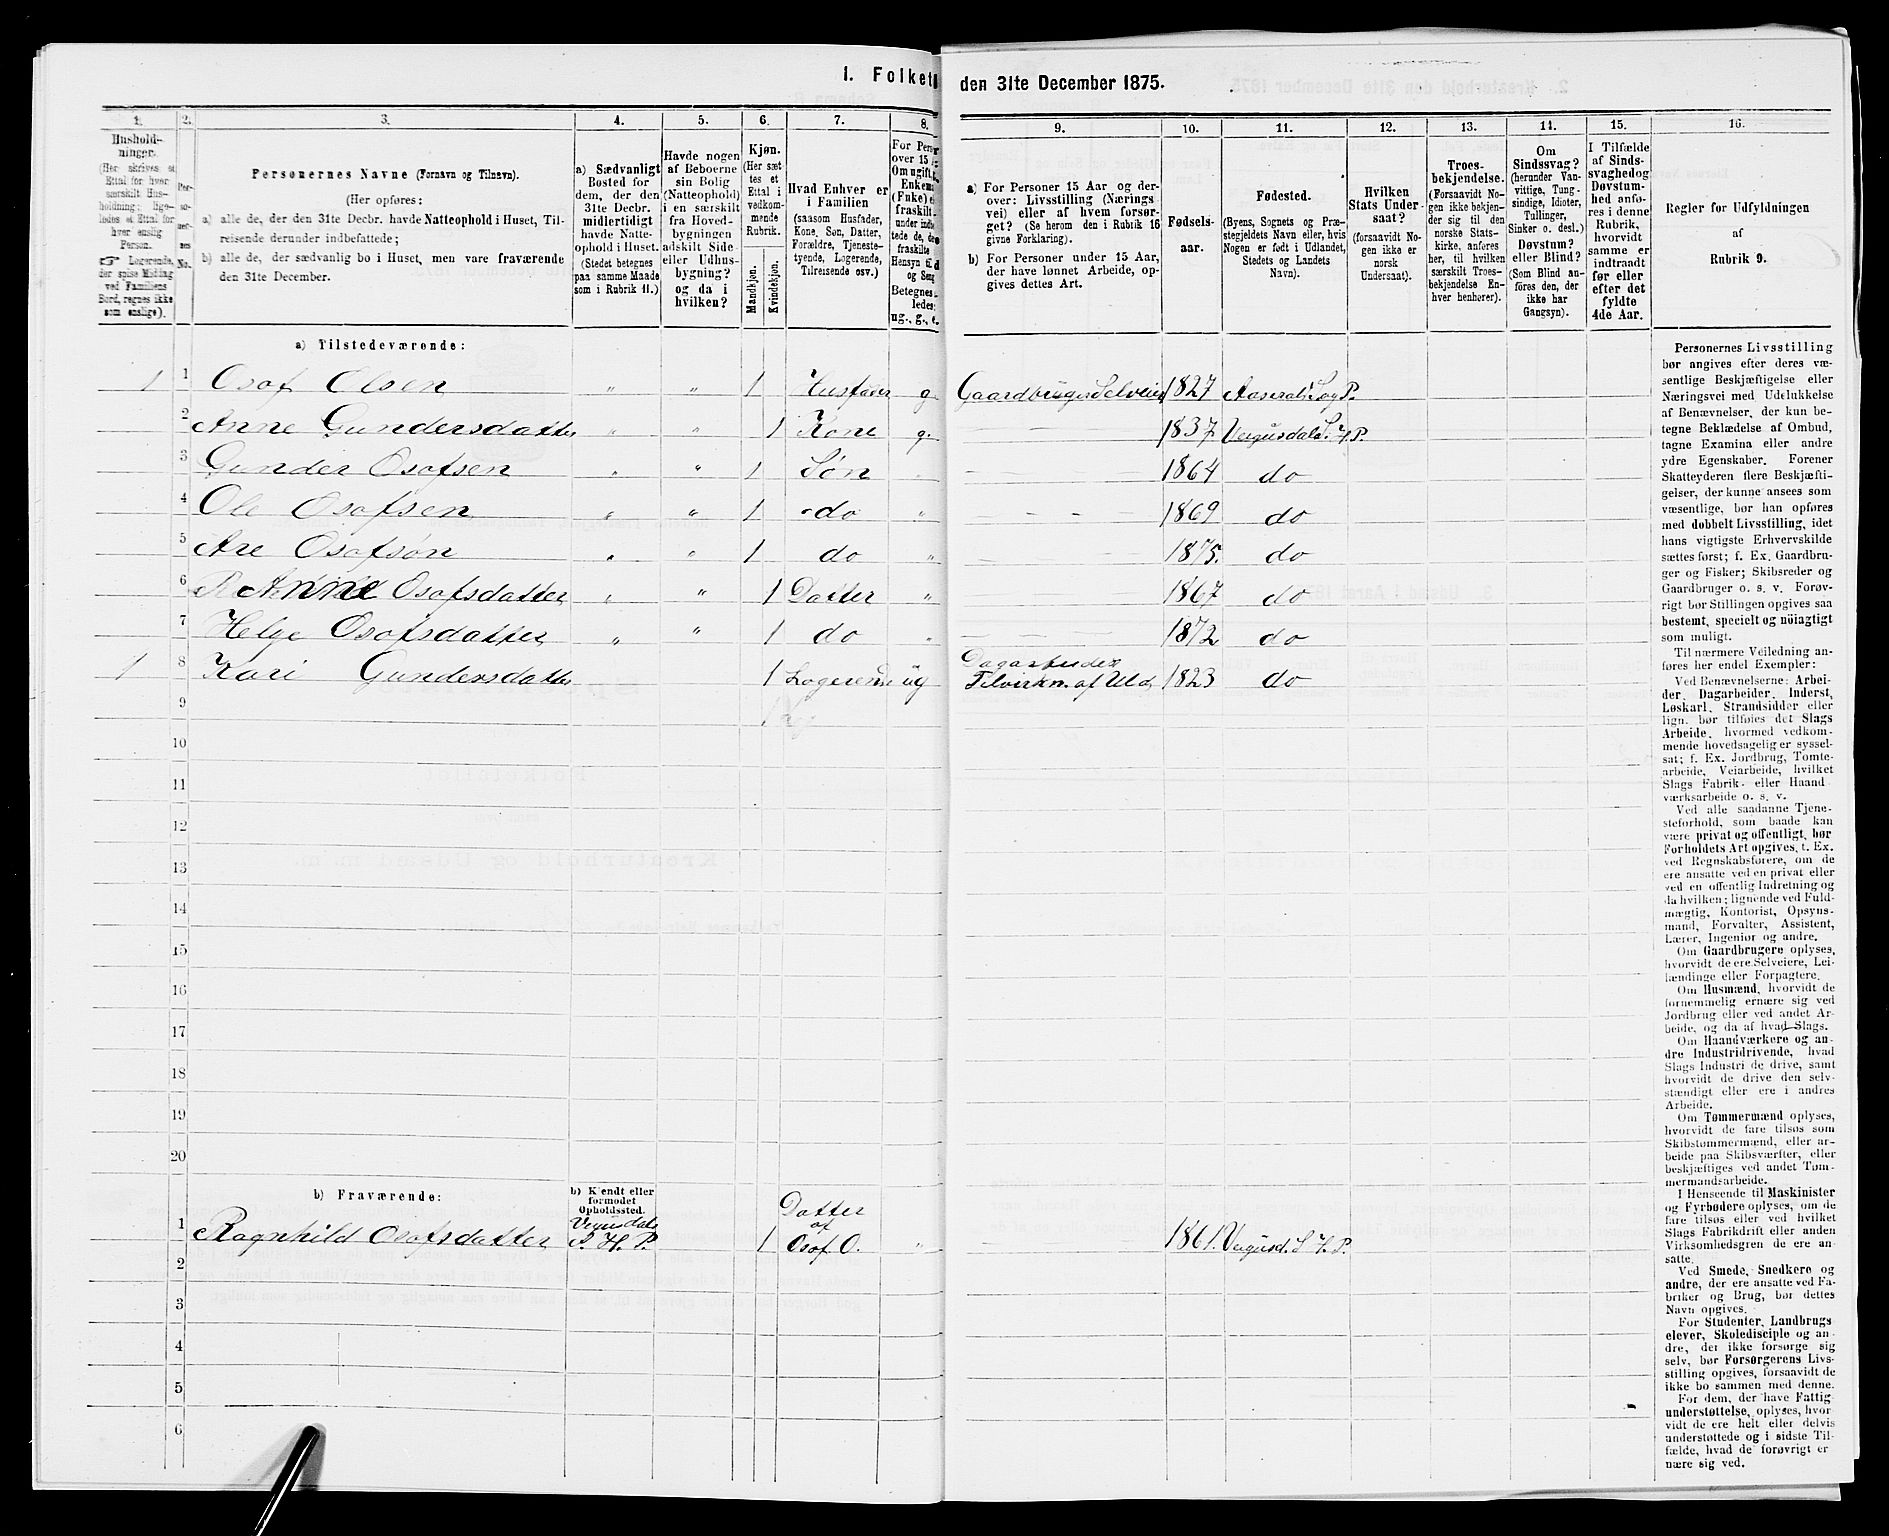 1. Folket
den 31te December 1875.
1.
2.
3.
4.
5.
6.
7.
8.
9.
10.
11.
12.
13.
14.
15.
16.
Hushold-
ninger.
(Her skrives et
Ettal for hver
særskilt Hus-
holdning; lige-
ledes et Ettal for
hver enslig
Person.
☞ Logerende,
der spise Middag
ved Familiens
Bord, regnes ikke
som enslige).
Per-
so-
ner-
nes
No.
Personernes Navne (Fornavn og Tilnavn).
(Her opføres:
a) alle de, der den 31te Decbr. havde Natteophold i Huset, Til-
reisende derunder indbefattede;
b) alle de, der sædvanlig bo i Huset, men vare fraværende
den 31te December.
a) Sædvanligt
Bosted for
dem, der den
31te Decbr.
midlertidigt
havde Natte-
ophold i Huset.
(Stedet betegnes
paa samme Maade
som i Rubrik 11.)
Havde nogen
af Beboerne
sin Bolig
(Natteophold)
i en særskilt
fra Hoved-
bygningen
adskilt Side-
eller Udhus-
bygning?
og da i
hvilken?
Kjøn.
(Her sæt-
tes et
Ettal i
vedkom-
mende
Rubrik.
Mandkjøn.
Kvindekjøn.
Hvad Enhver er
i Familien
(saasom Husfader,
Kone, Søn, Datter,
Forældre, Tjeneste-
tyende, Logerende,
Tilreisende osv.)
For Perso
over 15
Om ugift,
Enkema
(Enke) e
fraskilt
under indbe
tede de, de
fraskilte
Hensyn til
og Seng
Betegnes
ledes:
ug., g., e.
a) For Personer 15 Aar og der-
over: Livsstilling (Nærings-
vei) eller af hvem forsør-
get? (Se herom den i Rubrik 16
givne Forklaring).
b) For Personer under 15 Aar,
der have lønnet Arbeide, op-
gives dettes Art.
Fødsels-
aar.
Fødested.
(Byens, Sognets og Præ-
stegjeldets Navn eller, hvis
Nogen er født i Udlandet,
Stedets og Landets
Navn).
Hvilken
Stats Under-
saat?
(forsaavidt No-
gen ikke er
norsk
Undersaat).
Troes-
bekjendelse.
(Forsaavidt No-
gen ikke bekjen-
der sig til den
norske Stats-
kirke, anføres
her, til hvilken
særskilt Troes-
bekjendelse En-
hver henhører).
Om
Sindssvag?
(herunder Van-
vittige, Tung-
sindige, Idioter,
Tullinger,
Sinker o. desl.)
Døvstum?
eller Blind?
(Som Blind an-
føres den, der
ikke har
Gangsyn).
I Tilfælde
af Sinds-
svaghed og
Døvstum-
hed anfø-
res i denne
Rubrik,
hvorvidt
samme er
indtraadt
før eller
efter det
fyldte
4de Aar.
Regler for Udfyldningen
af
Rubrik 9.
a) Tilstedeværende:
1 1 Osof Olsen " " 1 Husfader g. Gaardbruger Selveier 1827 Aaserals S og P.
2 Anne Gundersdatter " " 1 Kone g. 1837 Vegusdals S. H. P.
3 Gunder Osofsen " " 1 Søn " 1864 do
4 Ole Osofsen " " 1 do " 1869 do
5 Are Osofsøn " " 1 do " 1875. do
6 Anne Osofsdatter " " 1 Datter " 1867 do
7 Helge Osofsdatter " " 1 do " 1872 do
1 8 Kari Gundersdatter 1 Logerende ug Dagarbeider Tilvirkn. af Uld. 1823 do
9
10
11
12
13
14
15
16
17
18
19
20
b) Fraværende:
b) Kjendt eller
formodet
Opholdssted.
1 Ragnhild Osofsdatter Vegusdals S. H. P. 1 Datter af Osof O. " 1861. Vegusd. S H. P.
2
3
4
5
6
Personernes Livsstilling
bør angives efter deres væ-
sentlige Beskjæftigelse eller
Næringsvei med Udelukkelse
af Benævnelser, der kun be-
tegne Beklædelse af Ombud,
tagne Examina eller andre
ydre Egenskaber. Forener
Skatteyderen flere Beskjæfti-
gelser, der kunne ansees som
væsentlige, bør han opføres
med dobbelt Livsstilling, idet
hans vigtigste Erhvervskilde
sættes først; f. Ex. Gaardbru-
ger og Fisker; Skibsreder og
Gaardbruger o. s. v. Forøv-
rigt bør Stillingen opgives saa
bestemt, specielt og nöiagtigt
som muligt.
Til nærmere Veiledning an-
føres her endel Exempler:
Ved Benævnelserne: Arbei-
der, Dagarbeider, Inderst,
Løskarl, Strandsidder eller
lign. bør tilføies det Slags
Arbeide, hvormed vedkom-
mende hovedsagelig er syssel-
sat; f. Ex. Jordbrug, Tomte-
arbeide, Veiarbeide, hvilket
Slags Fabrik- eller Haand-
værksarbeide o. s. v.
Ved alle saadanne Tjene-
steforhold, som baade kan
være privat og offentligt, bør
Forholdets Art opgives, t. Ex.
ved Regnskabsførere, om de
ere ansatte ved en privat eller
ved en offentlig Indretning og
da hvilken; lignende ved Fuld-
mægtig, Kontorist, Opsyns-
mand, Forvalter, Assistent,
Lærer, Ingeniør og andre.
Om Gaardbrugere oplyses,
hvorvidt de ere Selveiere, Lei-
lændinge eller Forpagtere.
Om Husmænd, hvorvidt de
fornemmelig ernære sig ved
Jordbrug eller ved andet Ar-
beide, og da af hvad Slags.
Om Haandværkere og an-
dre Industridrivende, hvad
Slags Industri de drive, samt
hvorvidt de drive den selv-
stændigt eller ere i andres
Arbeide.
Om Tømmermænd oplyses,
hvorvidt de fare tilsøs som
Skibstømmermænd, eller ar-
beide paa Skibsværfter, eller
beskjæftiges ved andet Tøm-
mermandsarbeide.
I Henseende til Maskinister
og Fyrbødere oplyses, om de
fare tilsøs eller ved hvilket
Slags Fabrikdrift eller anden
Virksomhedsgren de ere an-
satte.
Ved Smede, Snedkere og
andre, der ere ansatte ved Fa-
briker og Brug, bør dettes
Navn opgives.
For Studenter, Landbrugs-
elever, Skoledisciple og an-
dre, der ikke forsørge sig
selv, bør Forsørgerens Livs-
stilling opgives, forsaavidt de
ikke bo sammen med denne.
For dem, der have Fattig-
understøttelse, oplyses, hvor-
vidt de ere helt eller delvis
understøttede og i sidste Til-
fælde, hvad de forøvrigt er-
nære sig ved.